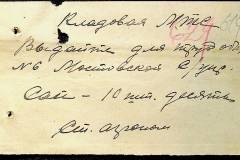 Кладовая МТС
Выдайте для
№6 Мостовской с/
10 шт. десять
Ст. агроном